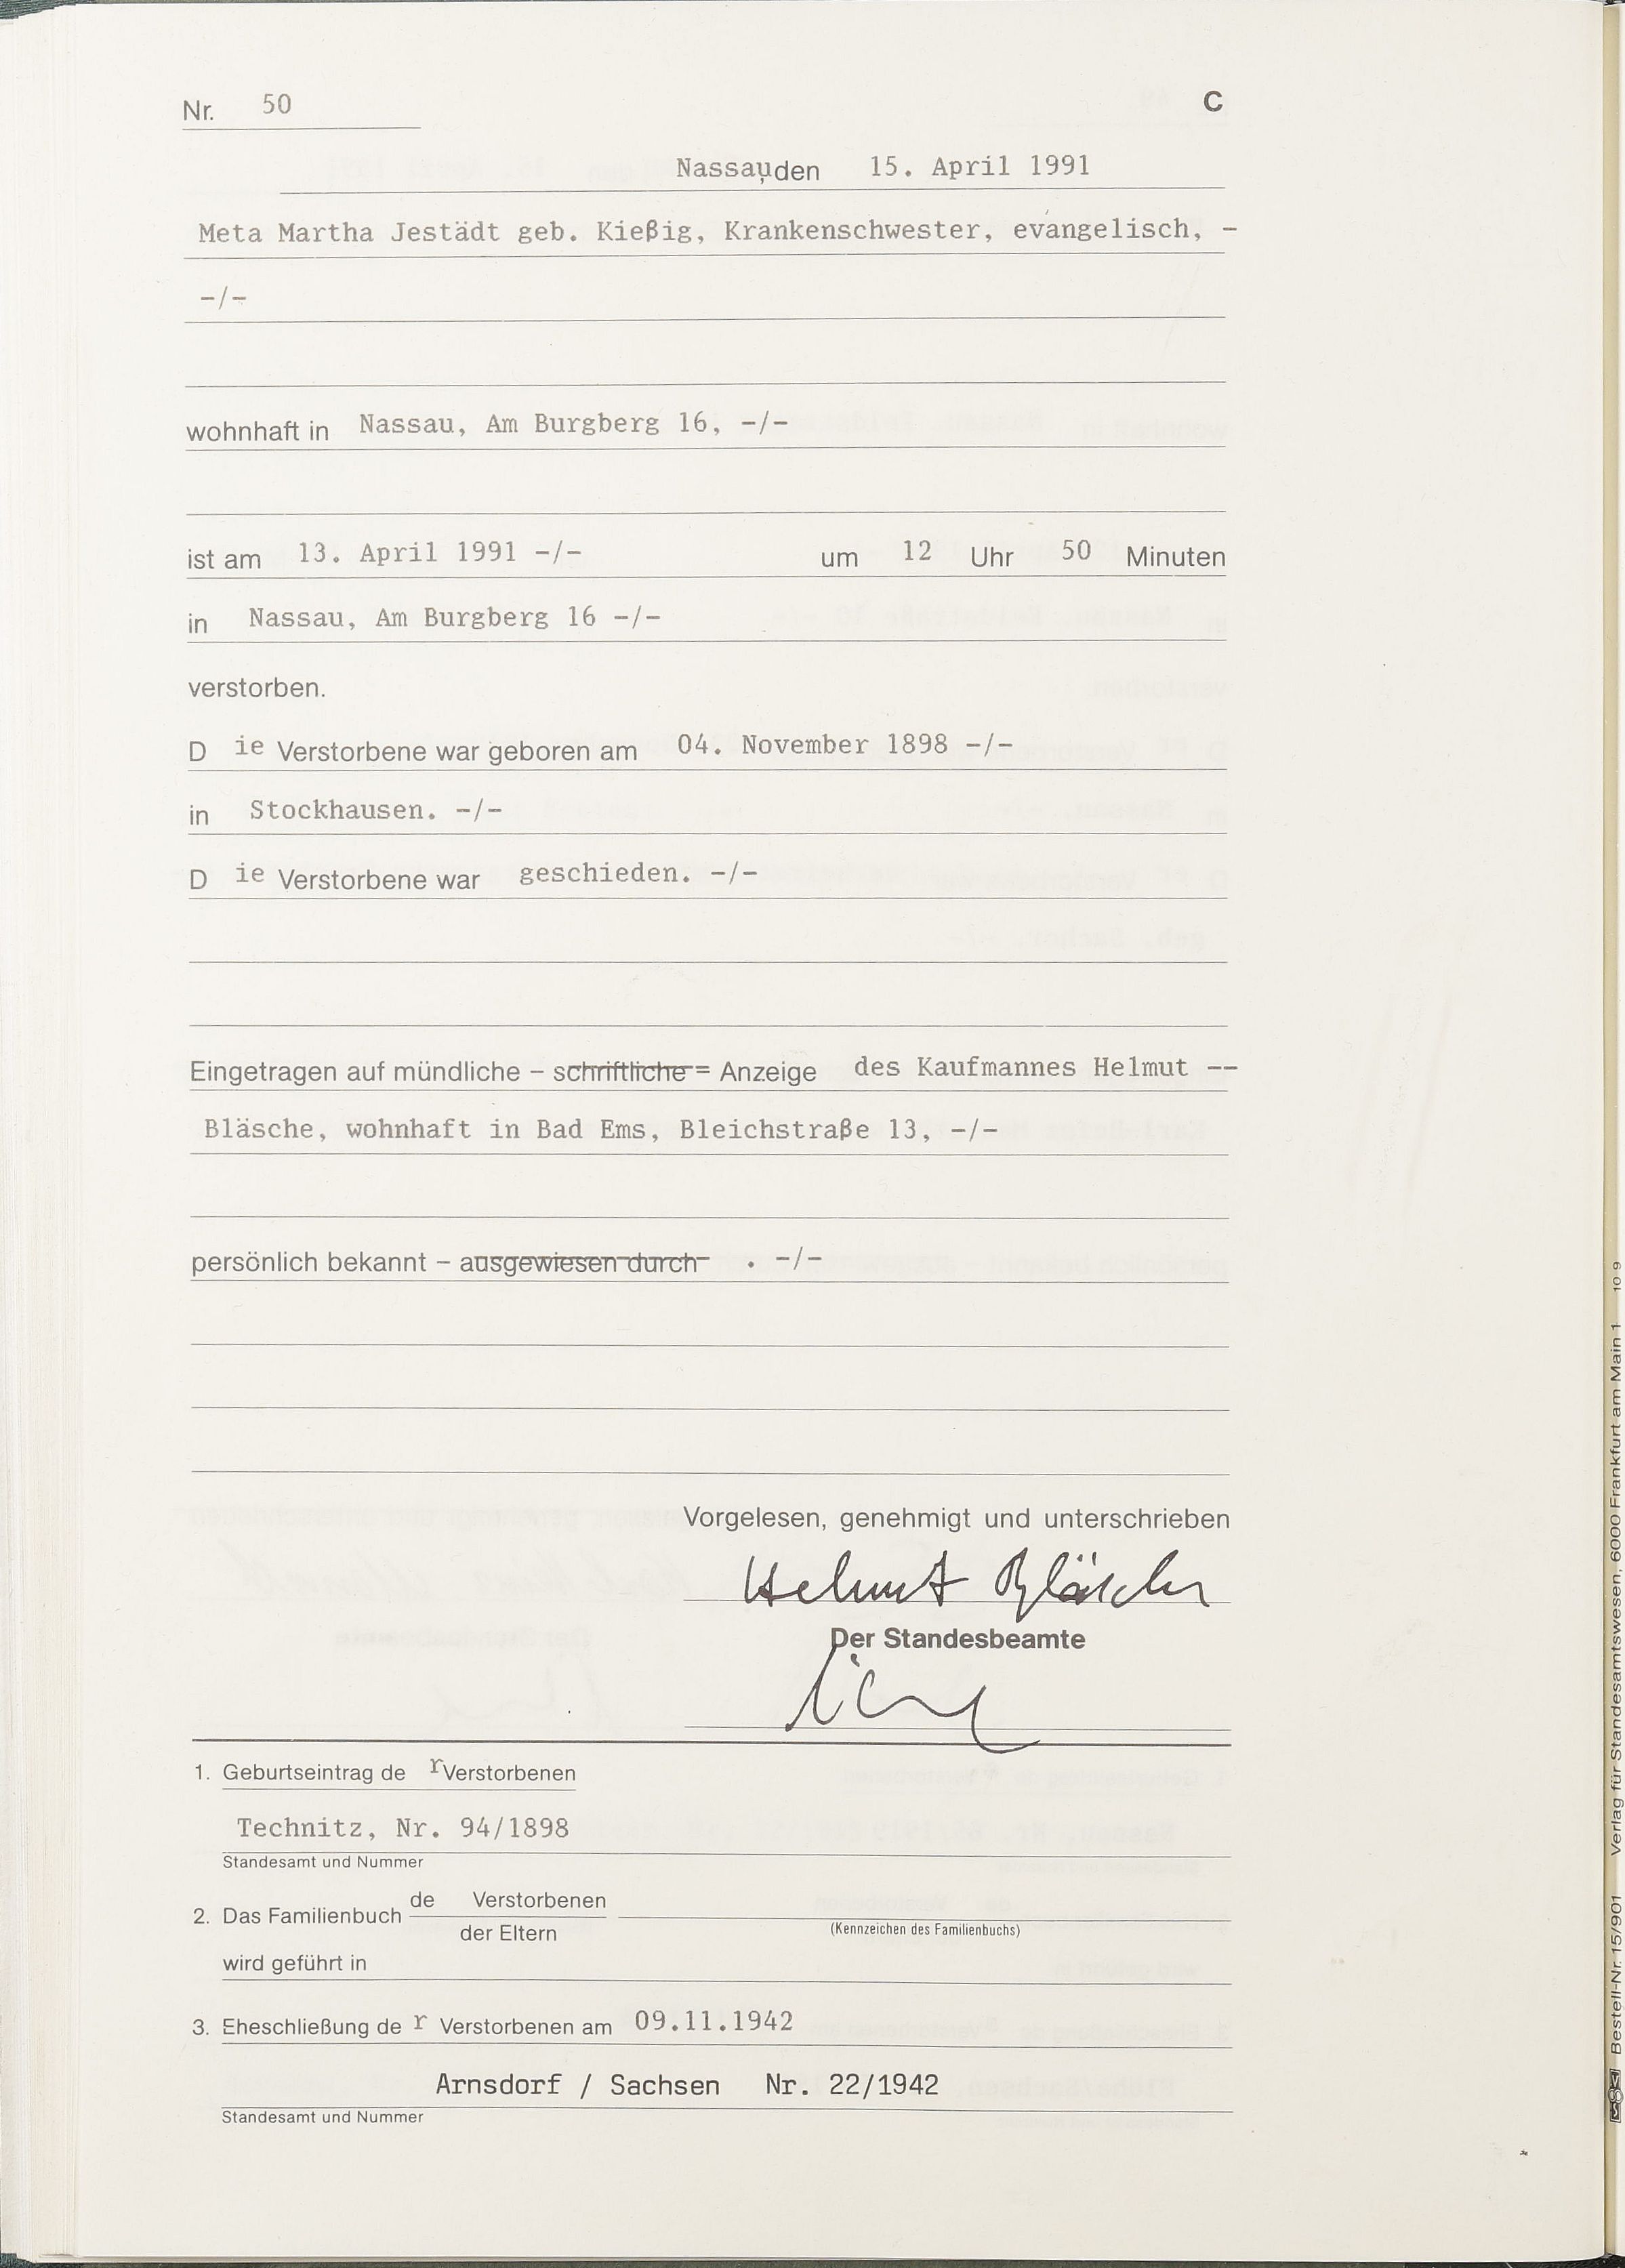 Nr. 50 C
Nassau, den 15. April 1991
Meta Martha Jestädt geb. Kießig, Krankenschwester, evangelisch, -
-/-
wohnhaft in Nassau, Am Burgberg 16, -/-
ist am 13. April 1991 -/- um 12 Uhr 50 Minuten
in Nassau, Am Burgberg 16 -/-
verstorben.
D ie Verstorbene war geboren am 04. November 1898 -/-
in Stockhausen. -/-
D ie Verstorbene war geschieden. -/-
Eingetragen auf mündliche – schriftliche = Anzeige des Kaufmannes Helmut --
Bläsche, wohnhaft in Bad Ems, Bleichstraße 13, -/-
persönlich bekannt – ausgewiesen durch . -/-
Vorgelesen, genehmigt und unterschrieben
Helmut Bläsche
Der Standesbeamte
1. Geburtseintrag de r Verstorbenen
Technitz, Nr. 94/1898
Standesamt und Nummer
de Verstorbenen
2. Das Familienbuch
der Eltern (Kennzeichen des Familienbuchs)
wird geführt in
3. Eheschließung de r Verstorbenen am 09.11.1942
Arnsdorf / Sachsen Nr. 22/1942
Standesamt und Nummer
Bestell-Nr. 15/901 Verlag für Standesamtswesen, 6000 Frankfurt am Main 1 10 9